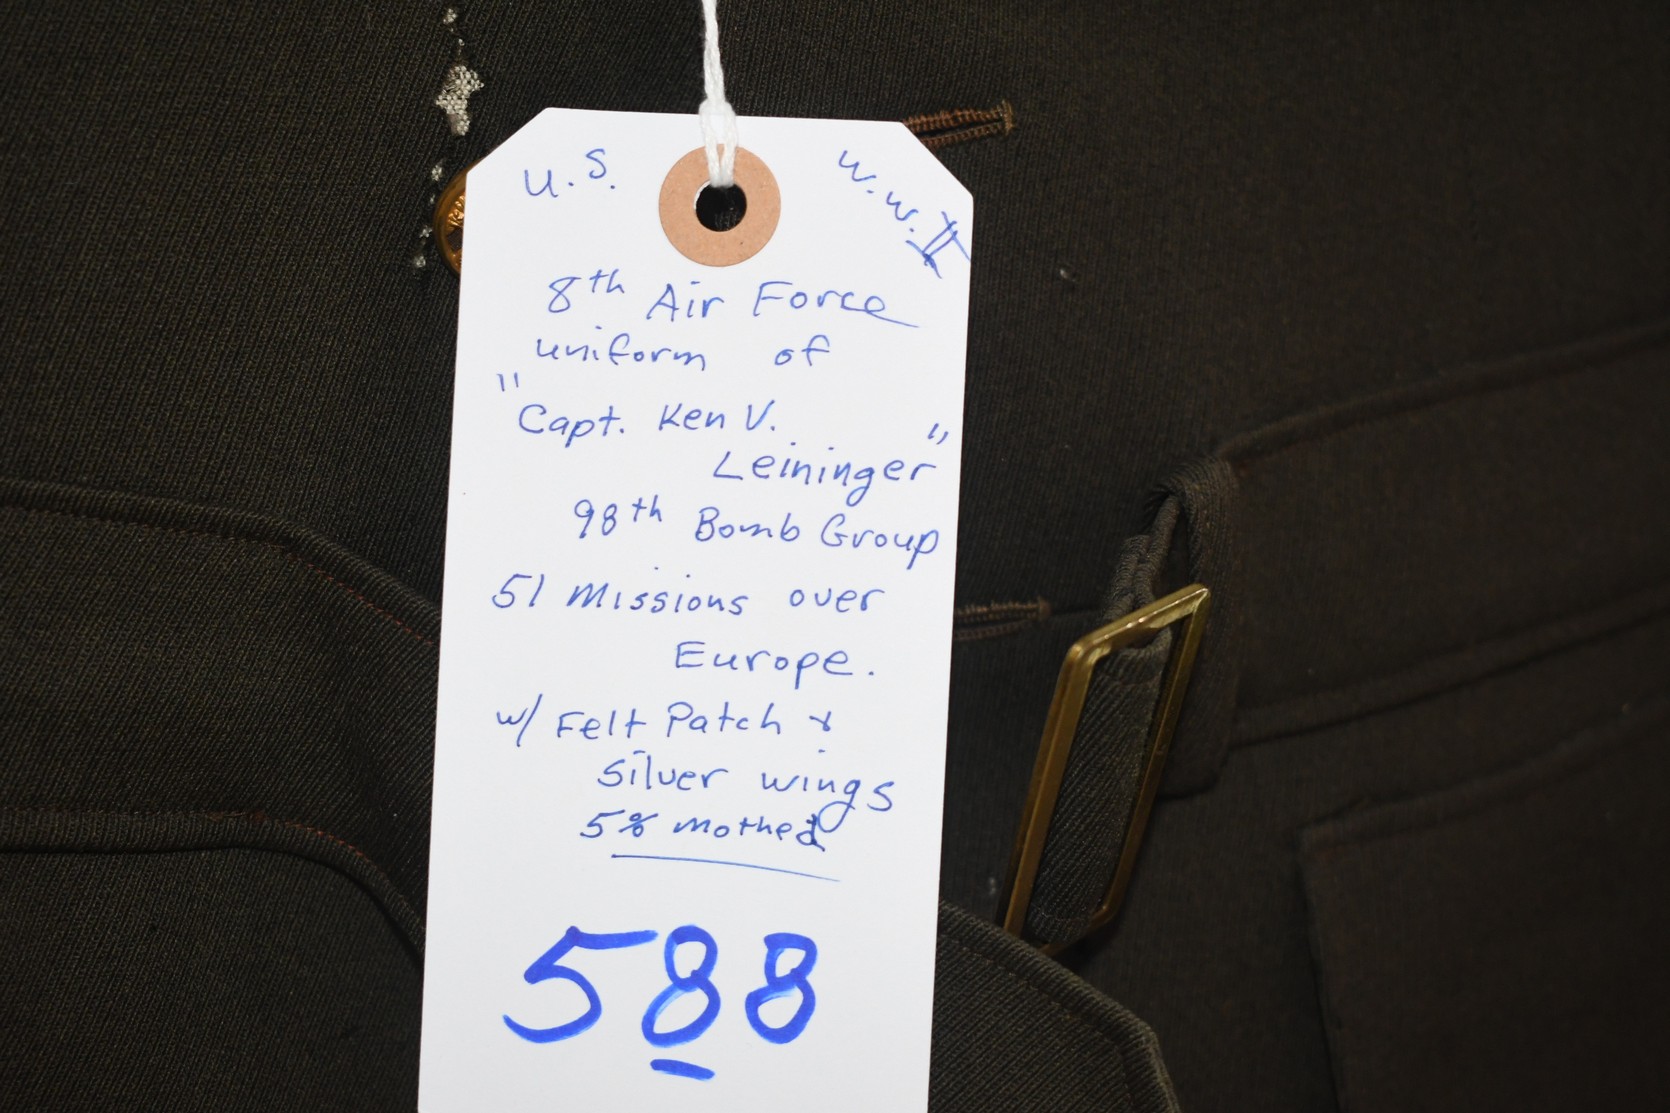 U.S. W.W.II
8th Air Force
uniform of
"Capt. Ken V.
Leininger"
98th Bomb Group
51 Missions over
Europe.
w/ Felt Patch &
silver wings
5% mothed
588